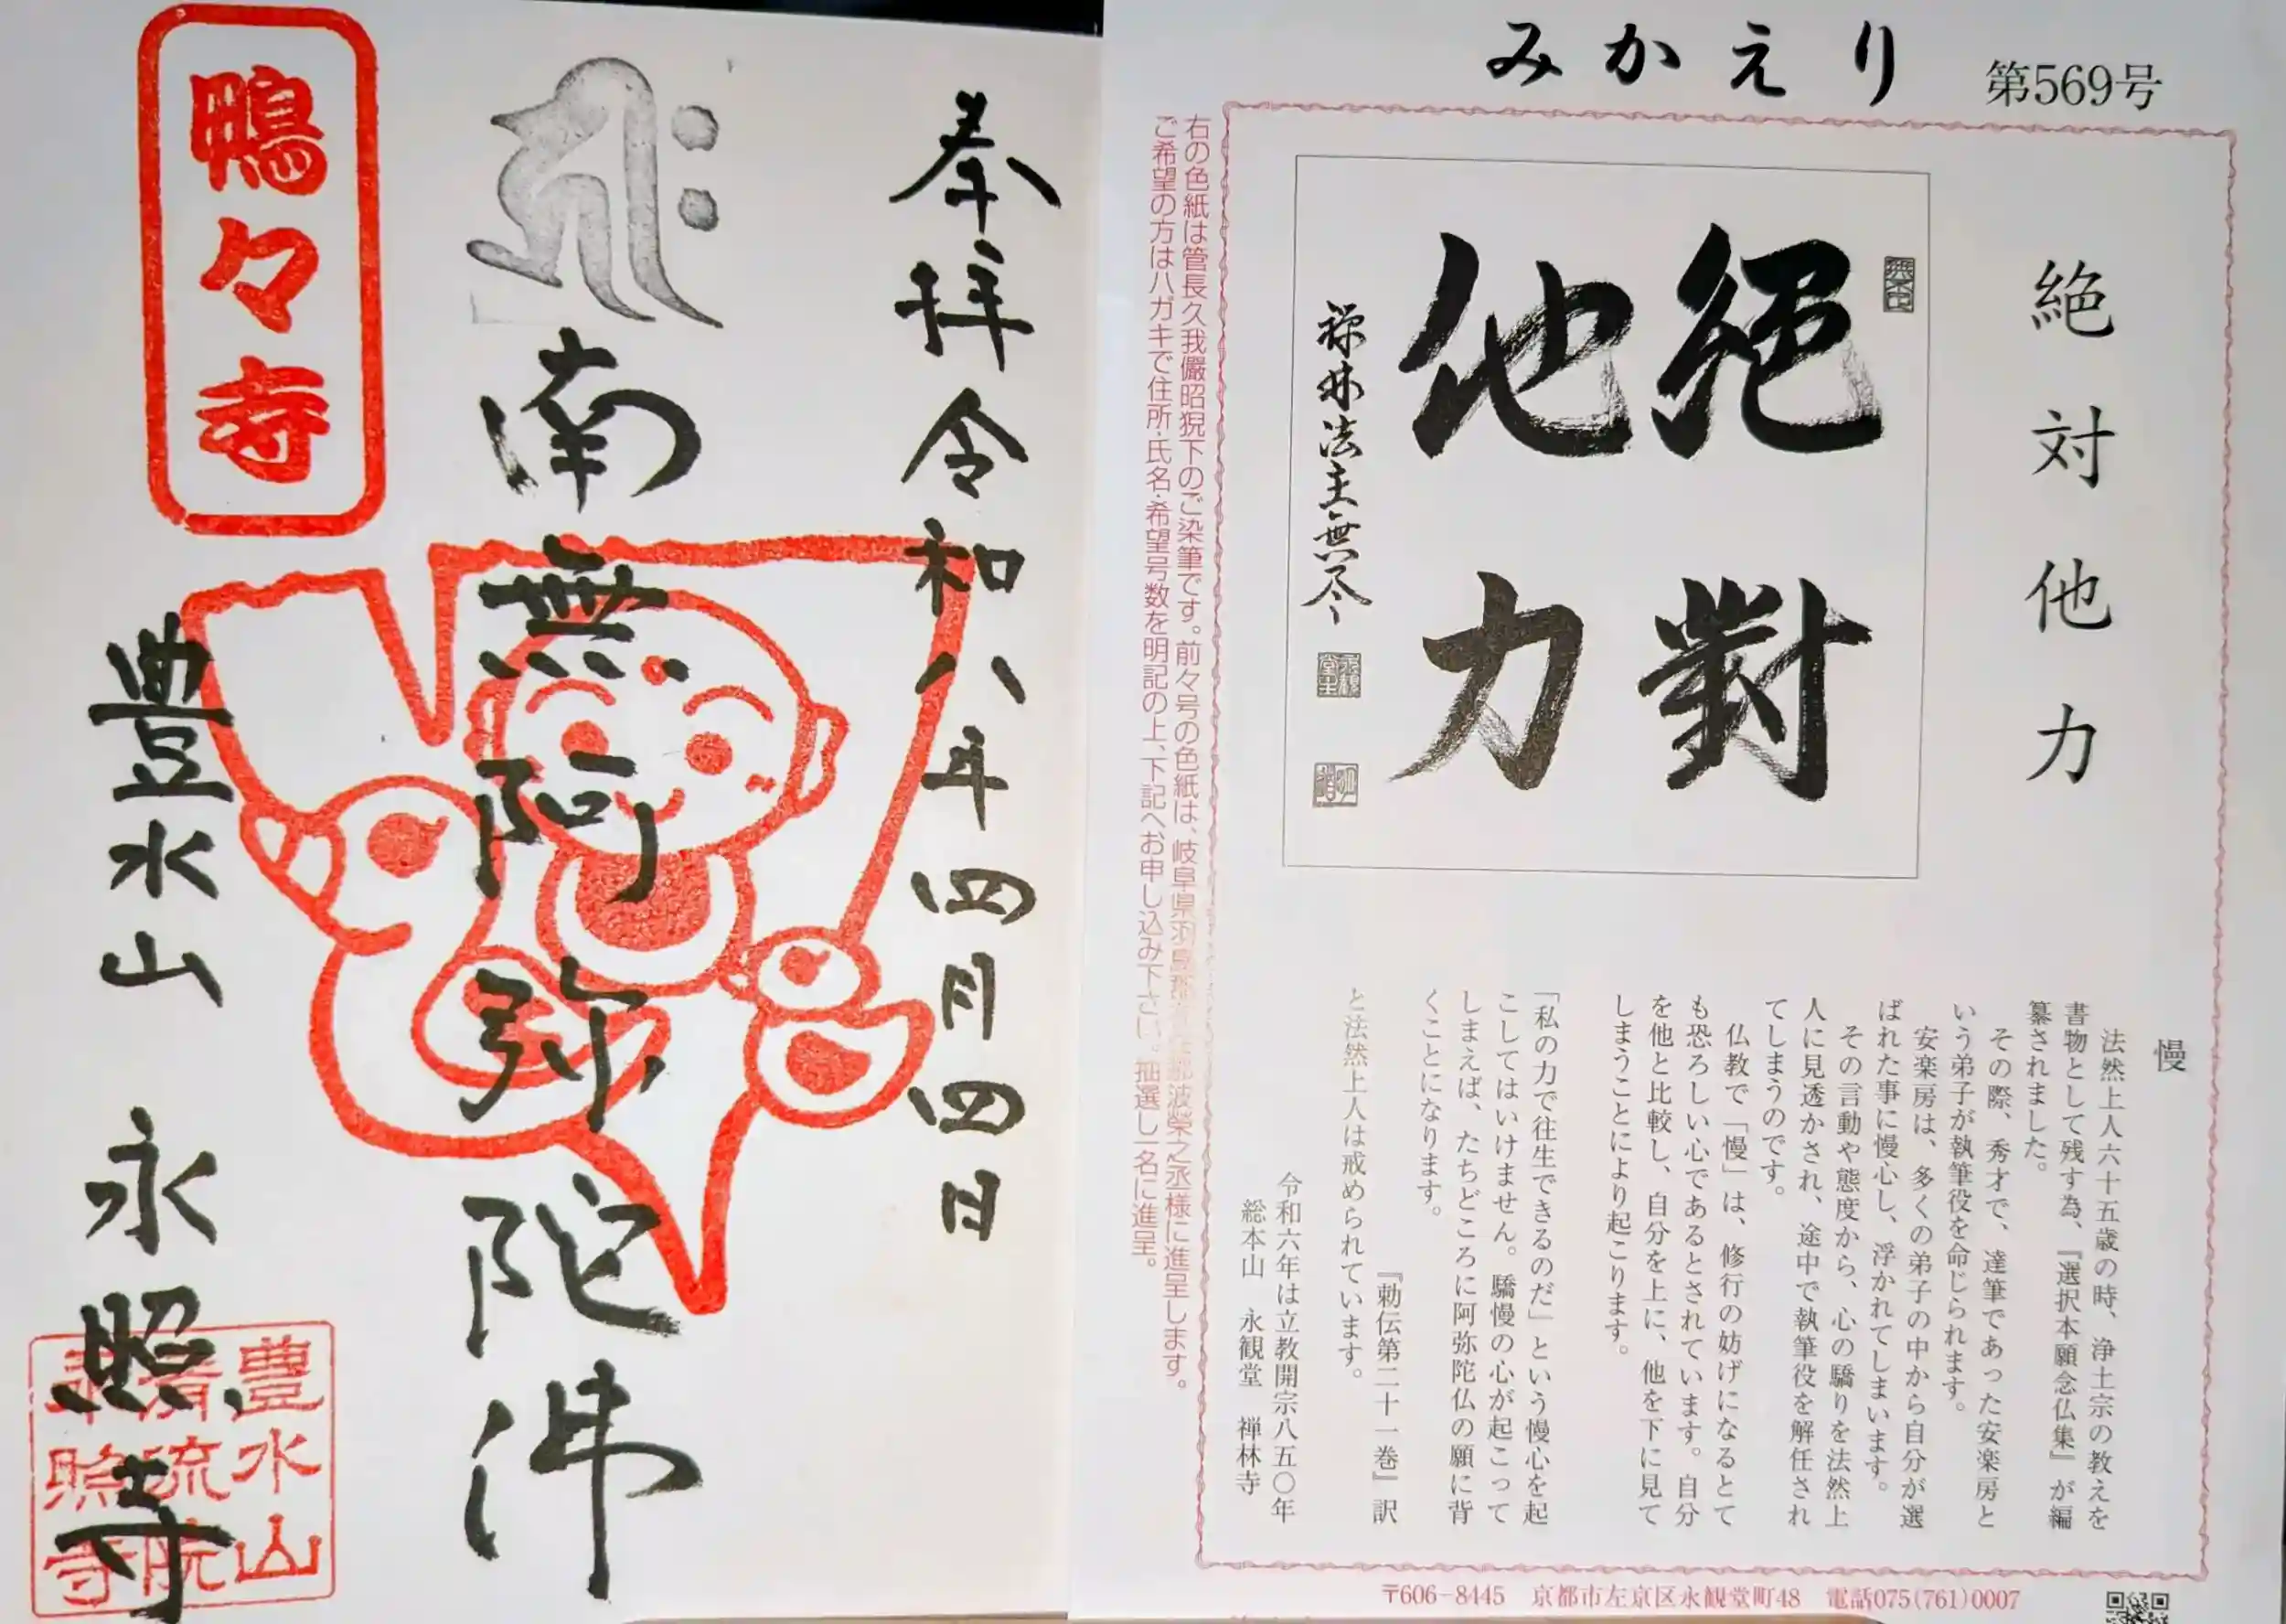 奉拝令和八年四月四日
南無阿弥陀佛
鴨々寺
豊水山 永照寺
豊水山
清流院
永照寺
みかえり 第569号
絶対他力
絶對
他力
禅林法主無尽
慢
法然上人六十五歳の時、浄土宗の教えを
書物として残す為、『選択本願念仏集』が編
纂されました。
その際、秀才で、達筆であった安楽房と
いう弟子が執筆役を命じられます。
安楽房は、多くの弟子の中から自分が選
ばれた事に慢心し、浮かれてしまいます。
その言動や態度から、心の驕りを法然上
人に見透かされ、途中で執筆役を解任され
てしまうのです。
仏教で「慢」は、修行の妨げになるとて
も恐ろしい心であるとされています。自分
を他と比較し、自分を上に、他を下に見て
しまうことにより起こります。
「私の力で往生できるのだ」という慢心を起
こしてはいけません。驕慢の心が起こって
しまえば、たちどころに阿弥陀仏の願に背
くことになります。
『勅伝第二十一巻』訳
と法然上人は戒められています。
令和六年は立教開宗八五〇年
総本山 永観堂 禅林寺
右の色紙は管長久我儼昭猊下のご染筆です。前々号の色紙は、岐阜県羽島郡波榮之丞様に進呈します。
ご希望の方はハガキで住所・氏名・希望号数を明記の上、下記へお申し込み下さい。抽選し一名に進呈。
〒606-8445 京都市左京区永観堂町48 電話075(761)0007